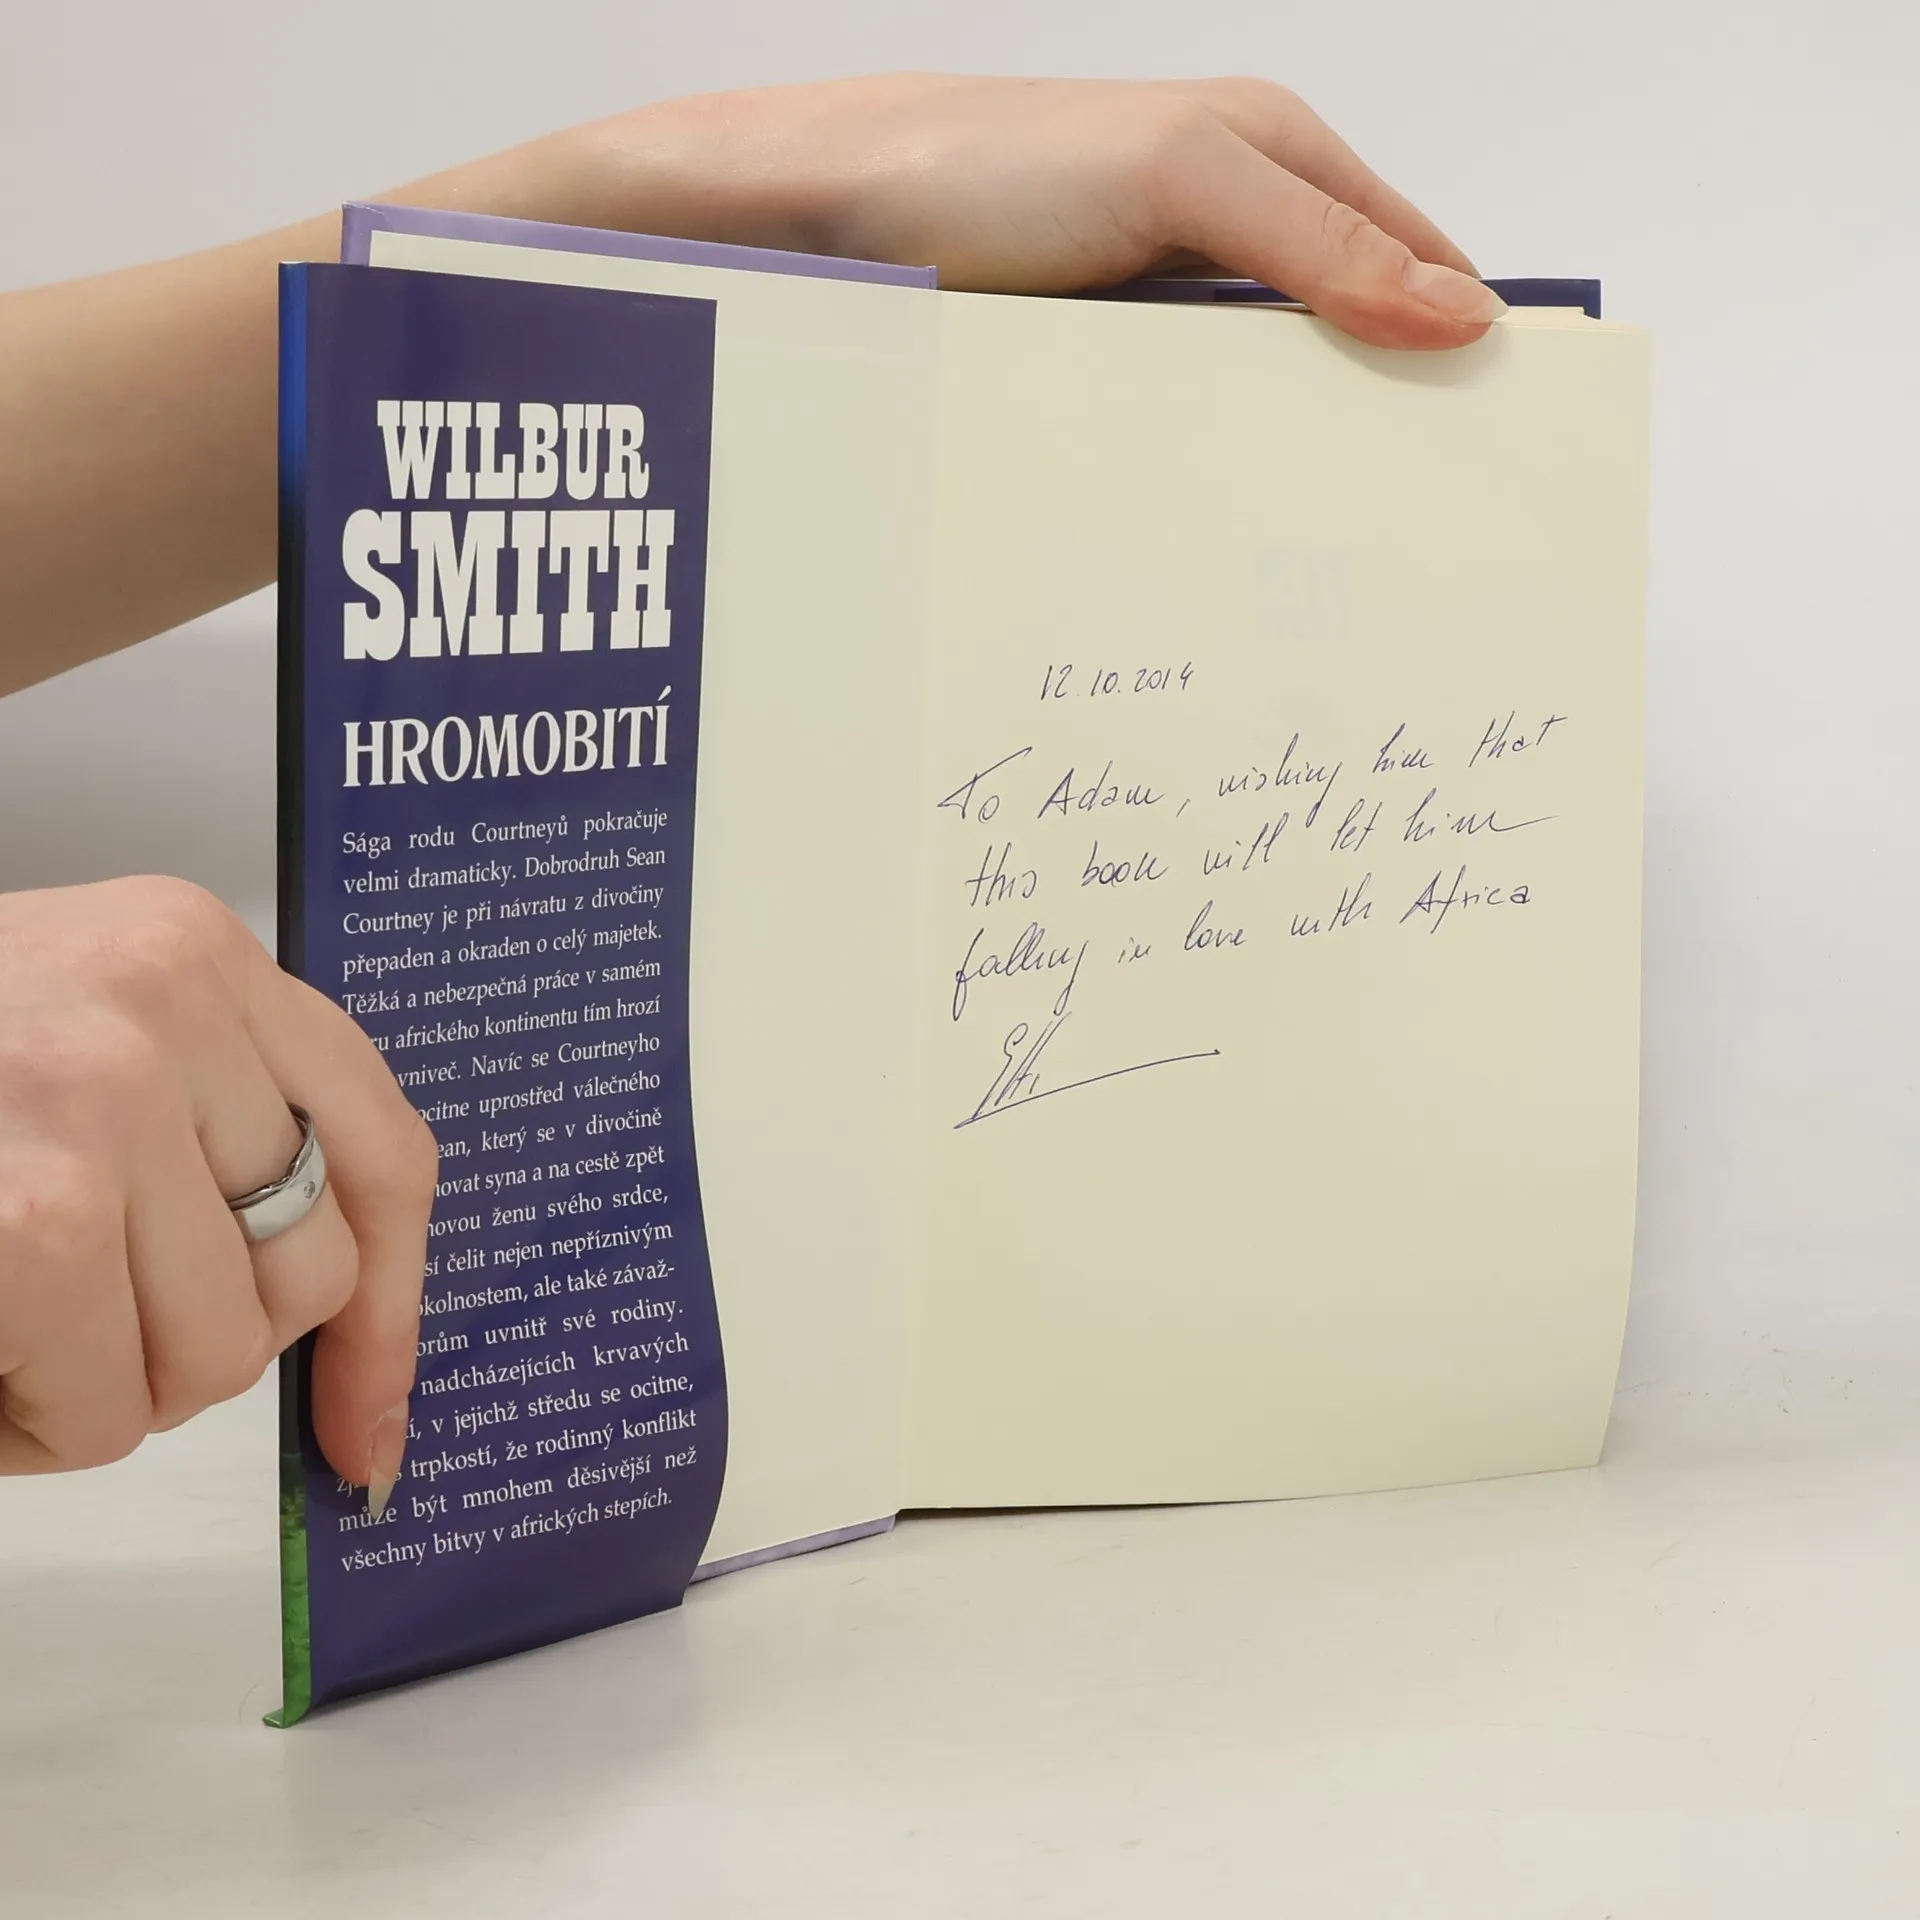 WILBUR
SMITH
HROMOBITÍ
Sága rodu Courtneyů pokračuje
velmi dramaticky. Dobrodruh Sean
Courtney je při návratu z divočiny
přepaden a okraden o celý majetek.
Těžká a nebezpečná práce v samém
afrického kontinentu tím hrozí
vniveč. Navíc se Courtneyho
ocitne uprostřed válečného
který se v divočině
syna a na cestě zpět
ženu svého srdce,
čelit nejen nepříznivým
ale také závaž-
uvnitř své rodiny.
nadcházejících krvavých
v jejichž středu se ocitne,
trpkostí, že rodinný konflikt
může být mnohem děsivější než
všechny bitvy v afrických stepích.
12.10.2014
To Adam, wishing him that
this book will let him
falling in love with Africa